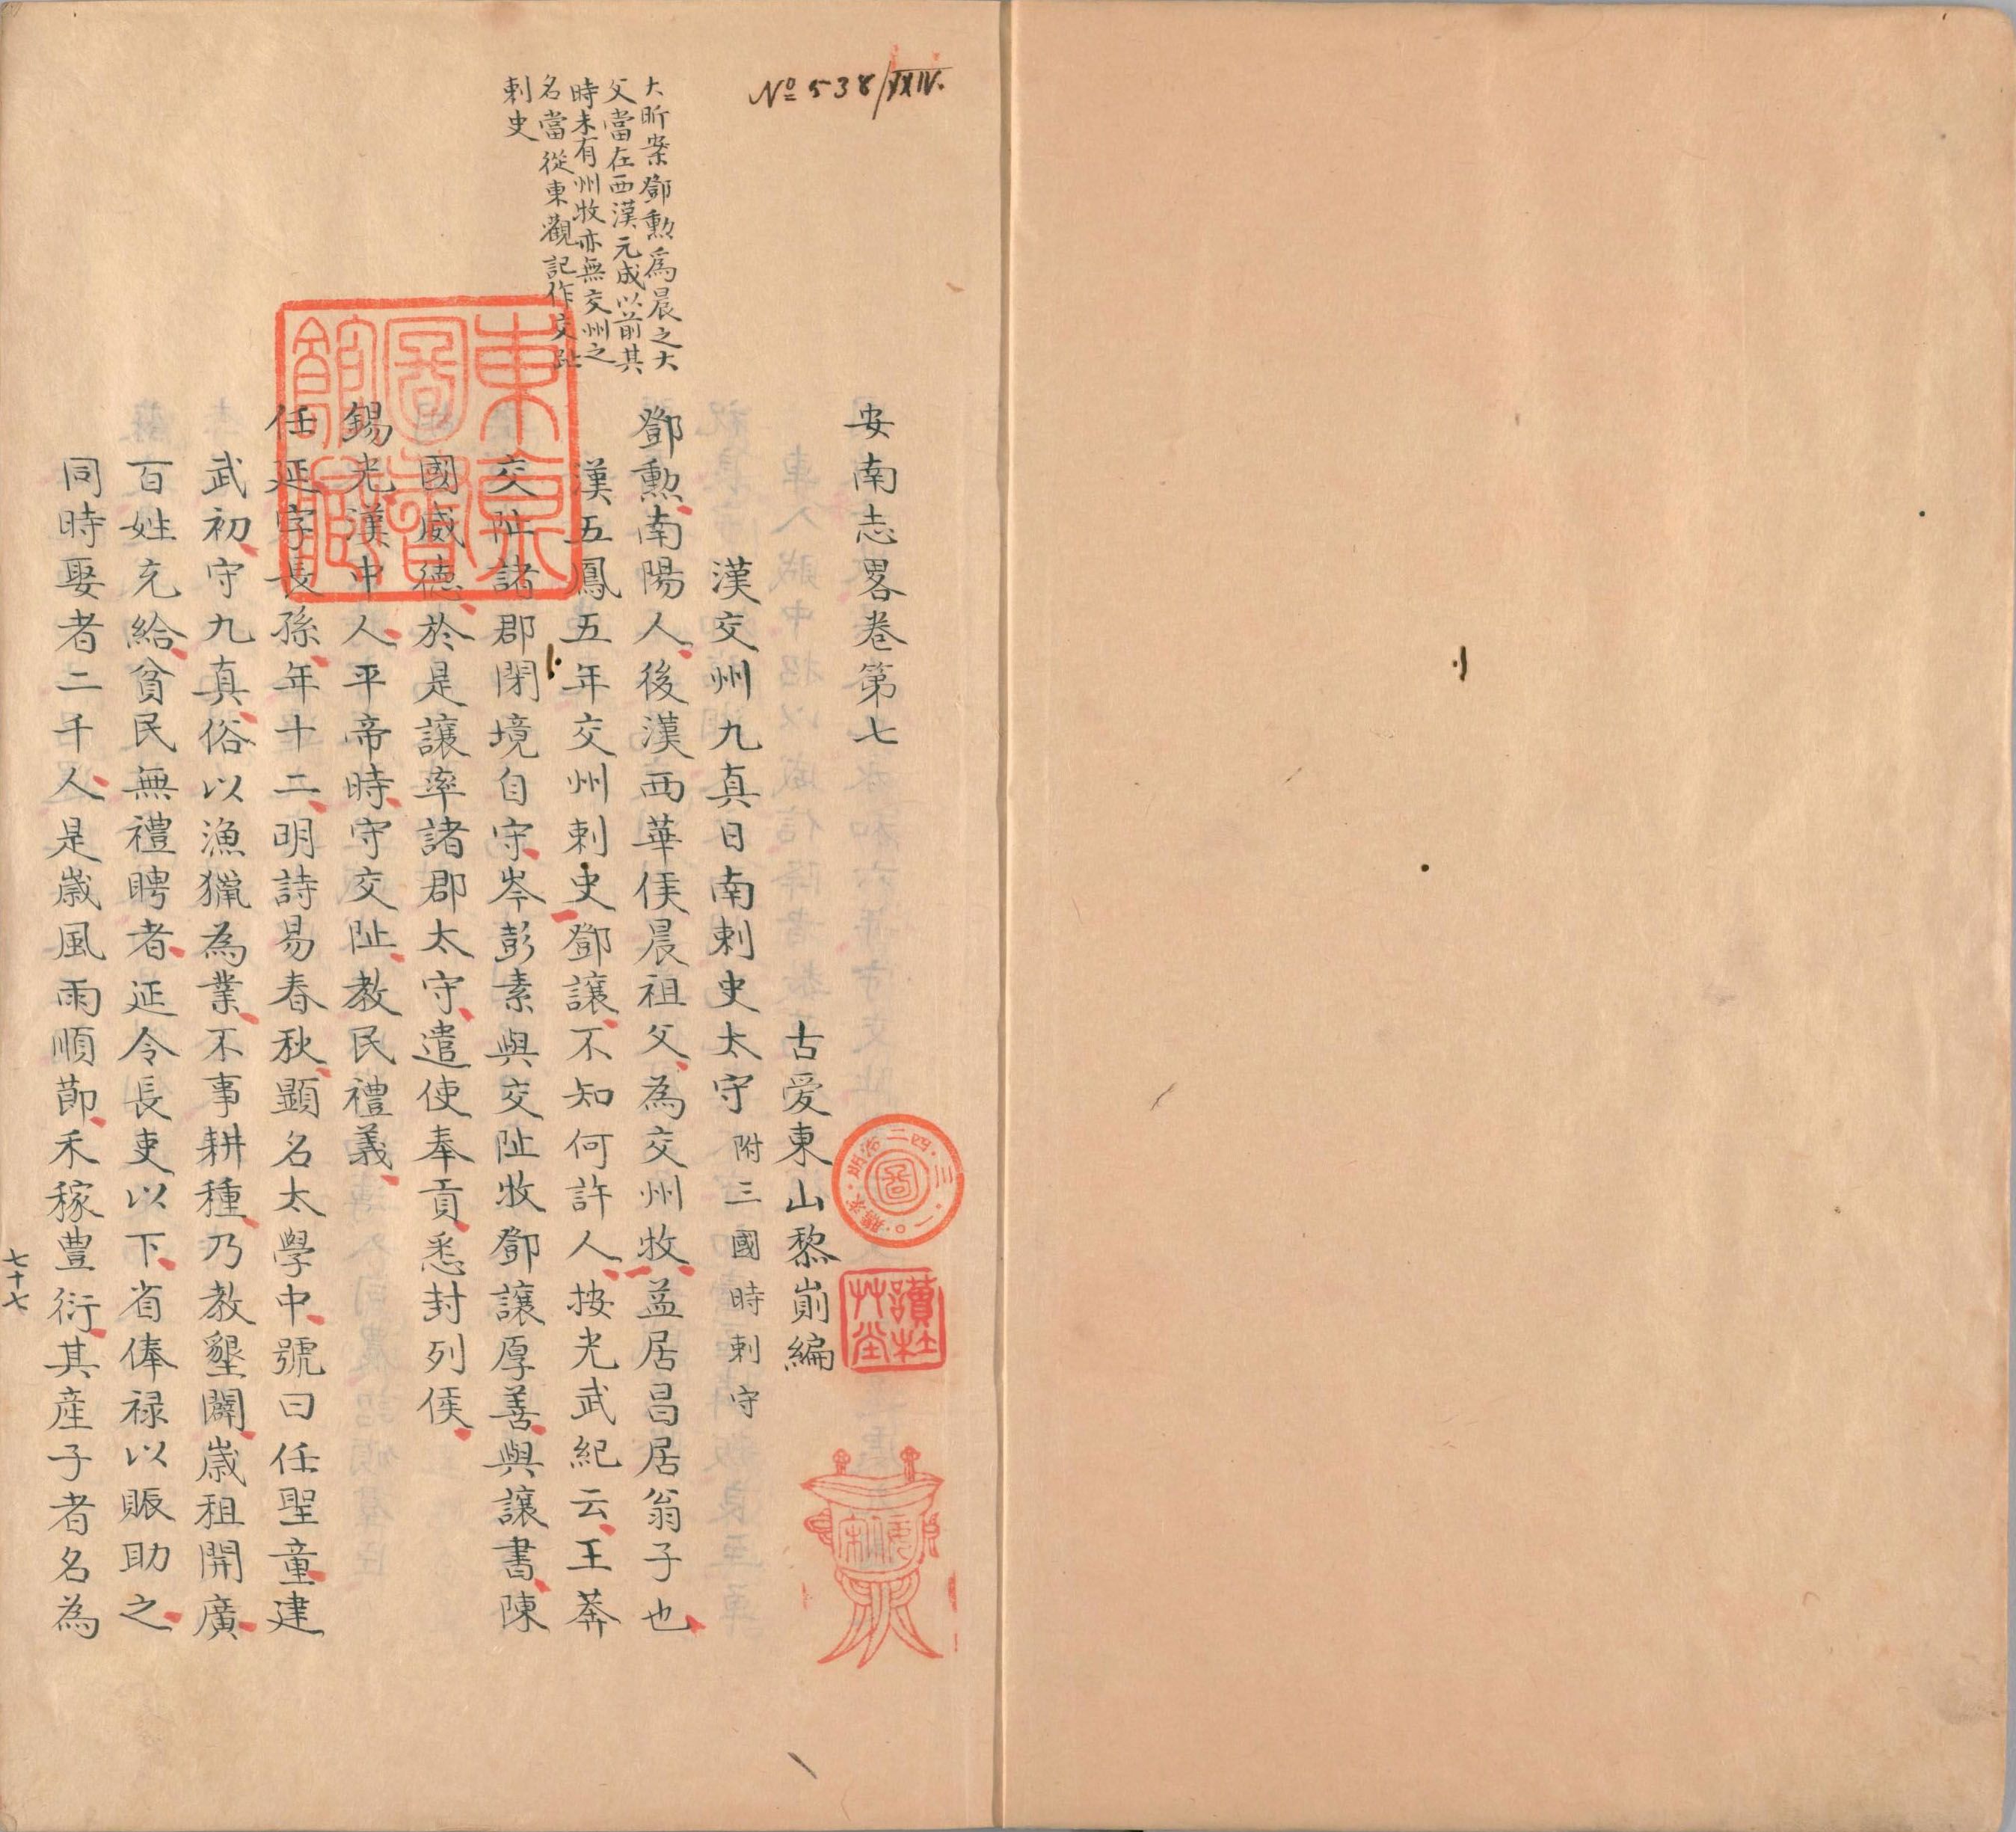 № 538/XXIV.
大昕案鄧勲爲晨之大
父當在西漢元成以前其
時未有州牧亦無交州之
名當從東觀記作交趾
刺史
安南志畧卷第七
古愛東山黎崱編
漢交州九真日南刺史太守 附三國時刺守
鄧勲南陽人後漢西華侯晨祖父為交州牧益居昌居翁子也
漢五鳳五年交州刺史鄧讓不知何許人按光武紀云王莽
交阯諸郡閉境自守岑彭素與交阯牧鄧讓厚善與讓書陳
國威德於是讓率諸郡太守遣使奉貢悉封列侯
錫光漢中人平帝時守交阯教民禮義
任延字長孫年十二明詩易春秋顯名太學中號曰任聖童建
武初守九真俗以漁獵為業不事耕種乃教墾闢歲租開廣
百姓充給貧民無禮聘者延令長吏以下省俸禄以賑助之
同時娶者二千人是歲風雨順節禾稼豊衍其産子者名為
七十七
東京圖書館藏
圖 明治二四·三·一〇·購求
讀杜艸堂